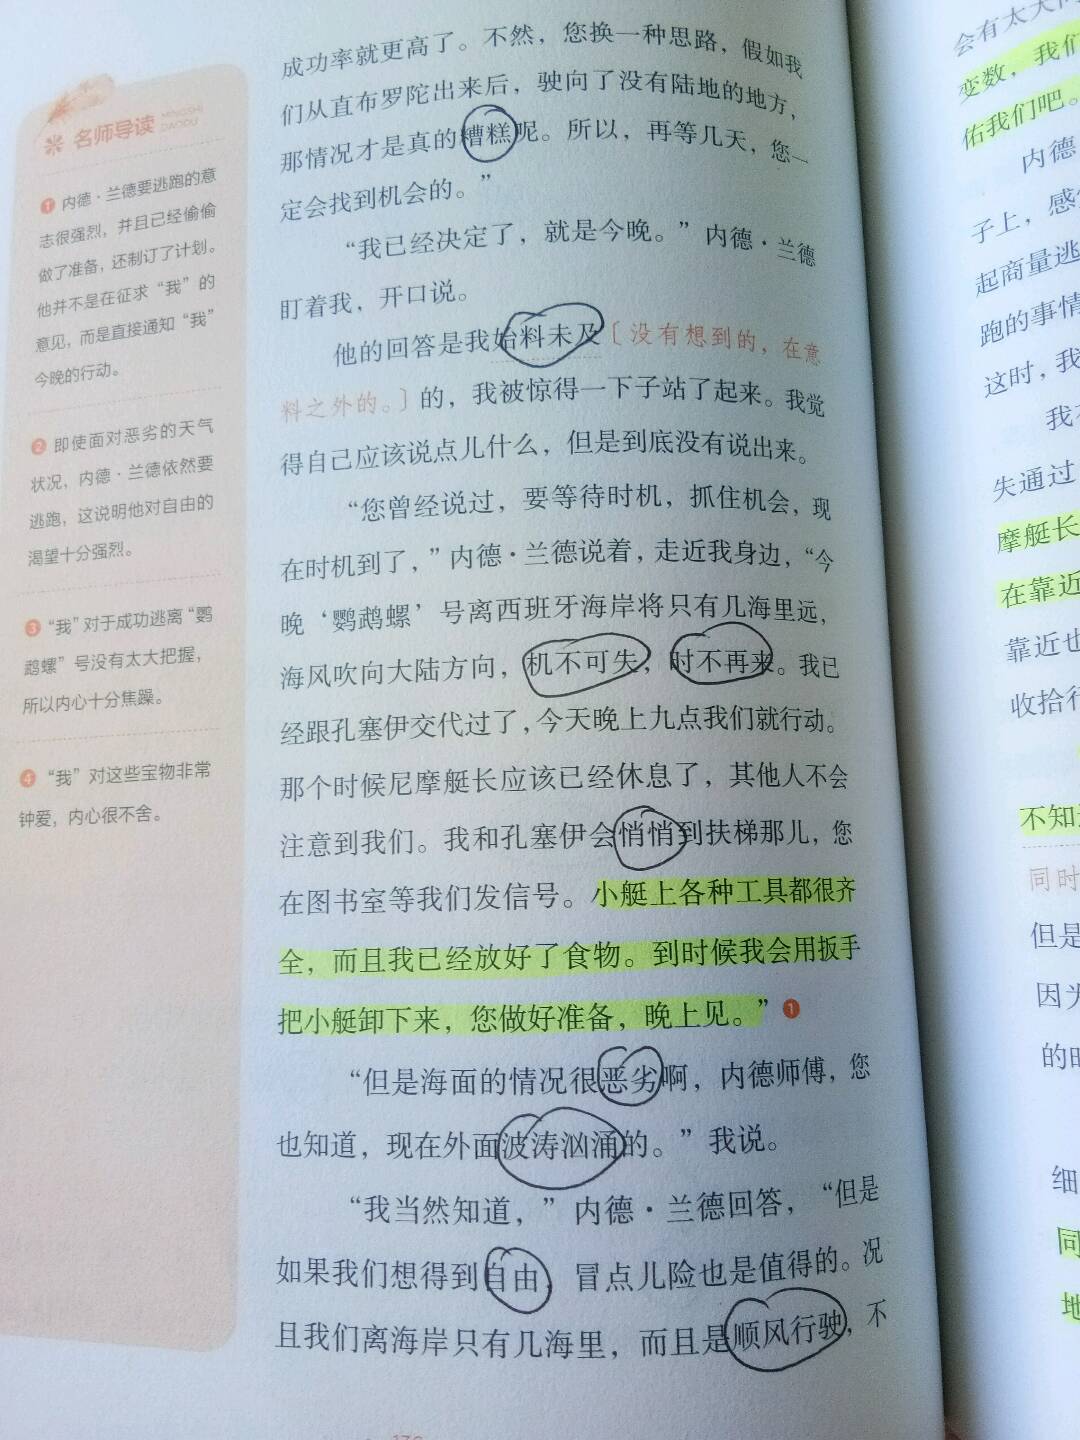 名师导读
MINGSHI
DAODU
1 内德·兰德要逃跑的意
志很强烈，并且已经偷偷
做了准备，还制订了计划。
他并不是在征求“我”的
意见，而是直接通知“我”
今晚的行动。
2 即使面对恶劣的天气
状况，内德·兰德依然要
逃跑，这说明他对自由的
渴望十分强烈。
3 “我”对于成功逃离“鹦
鹉螺”号没有太大把握，
所以内心十分焦躁。
4 “我”对这些宝物非常
钟爱，内心很不舍。
成功率就更高了。不然，您换一种思路，假如我
们从直布罗陀出来后，驶向了没有陆地的地方，
那情况才是真的糟糕呢。所以，再等几天，您一
定会找到机会的。”
“我已经决定了，就是今晚。”内德·兰德
盯着我，开口说。
他的回答是我始料未及〔没有想到的，在意
料之外的。〕的，我被惊得一下子站了起来。我觉
得自己应该说点儿什么，但是到底没有说出来。
“您曾经说过，要等待时机，抓住机会，现
在时机到了，”内德·兰德说着，走近我身边，“今
晚‘鹦鹉螺’号离西班牙海岸将只有几海里远，
海风吹向大陆方向，机不可失，时不再来。我已
经跟孔塞伊交代过了，今天晚上九点我们就行动。
那个时候尼摩艇长应该已经休息了，其他人不会
注意到我们。我和孔塞伊会悄悄到扶梯那儿，您
在图书室等我们发信号。小艇上各种工具都很齐
全，而且我已经放好了食物。到时候我会用扳手
把小艇卸下来，您做好准备，晚上见。”1
“但是海面的情况很恶劣啊，内德师傅，您
也知道，现在外面波涛汹涌的。”我说。
“我当然知道，”内德·兰德回答，“但是
如果我们想得到自由，冒点儿险也是值得的。况
且我们离海岸只有几海里，而且是顺风行驶，不
会有太大
变数，我们
佑我们吧。
内德
子上，感
起商量逃
跑的事情
这时，我
我
失通过
摩艇长
在靠近
靠近也
收拾行
不知
同时
但是
因为
的时
细
同
地